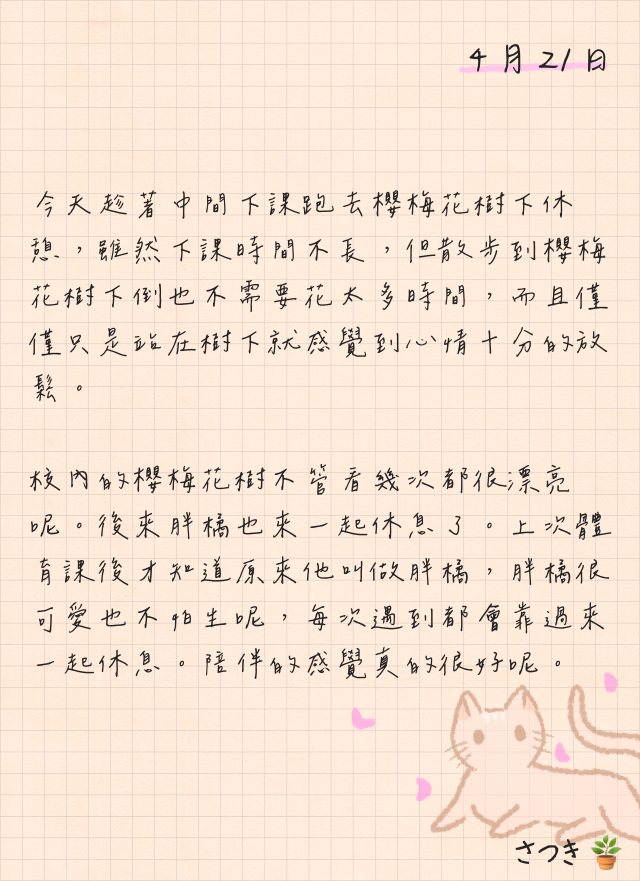 4月21日
今天趁著中間下課跑去櫻梅花樹下休
憩，雖然下課時間不長，但散步到櫻梅
花樹下倒也不需要花太多時間，而且僅
僅只是站在樹下就感覺到心情十分的放
鬆。
校內的櫻梅花樹不管看幾次都很漂亮
呢。後來胖橘也來一起休息了。上次體
育課後才知道原來他叫做胖橘，胖橘很
可愛也不怕生呢，每次遇到都會靠過來
一起休息。陪伴的感覺真的很好呢。
さつき